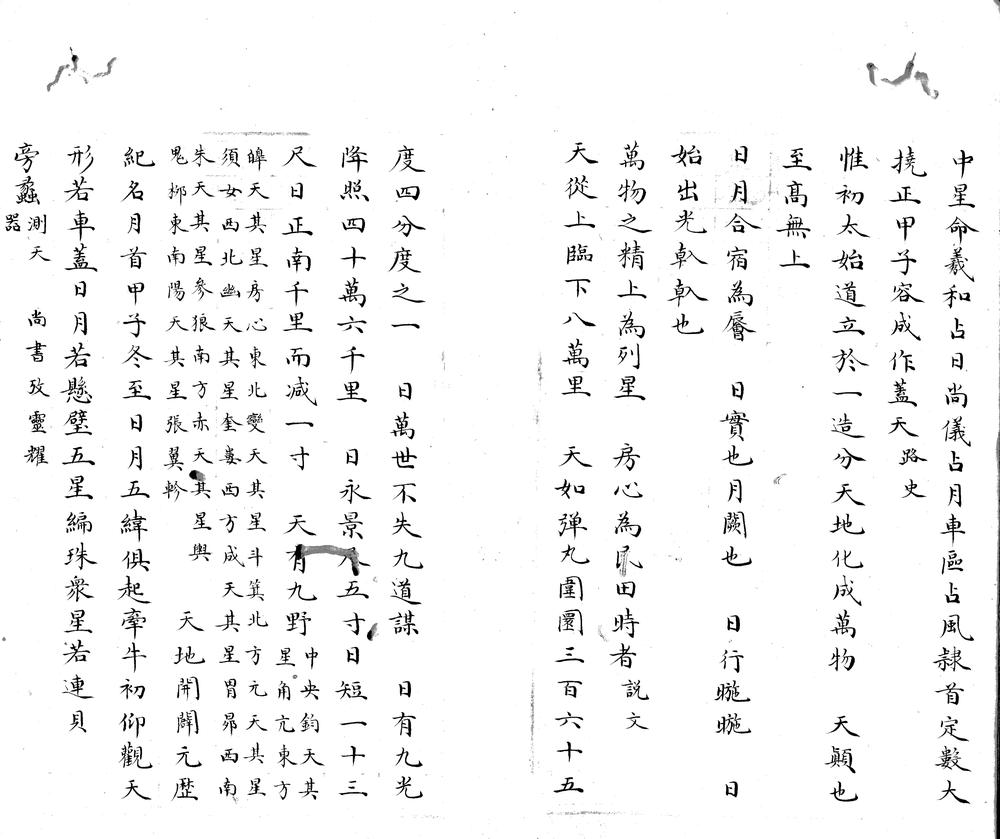 中星命羲和占日尚儀占月車區占風隷首定數大
撓正甲子容成作蓋天路史
惟初太始道立於一造分天地化成萬物　天顚也
至髙無上
日月合宿為厴　日實也月闕也　日行暆暆　日
始出光倝倝也
萬物之精上為列星　房心為民田時者説文
天從上臨下八萬里　天如弹丸圍圜三百六十五
度四分度之一　日萬世不失九道謀　日有九光
降照四十萬六千里　日永景尺五寸日短一十三
尺日正南千里而减一寸　天有九野中央鈞天其
星角亢東方
皥天其星房心東北變天其星斗箕北方元天其星
須女西北幽天其星奎婁西方成天其星胃昴西南
朱天其星參狼南方赤天其星輿
鬼栁東南陽天其星張翼軫
天地開闢元歴
紀名月首甲子冬至日月五緯俱起牽牛初仰觀天
形若車蓋日月若懸璧五星編珠衆星若連貝
旁蠡測天
器
尚書攷靈耀